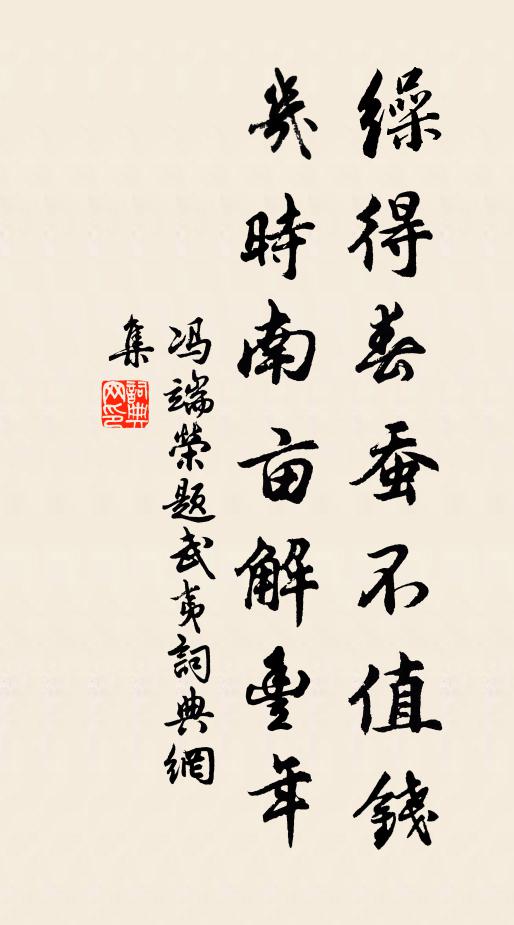 繰得春蚕不值錢
幾時南亩解豐年
冯端榮題武夷詞典網
集
詞典
网印